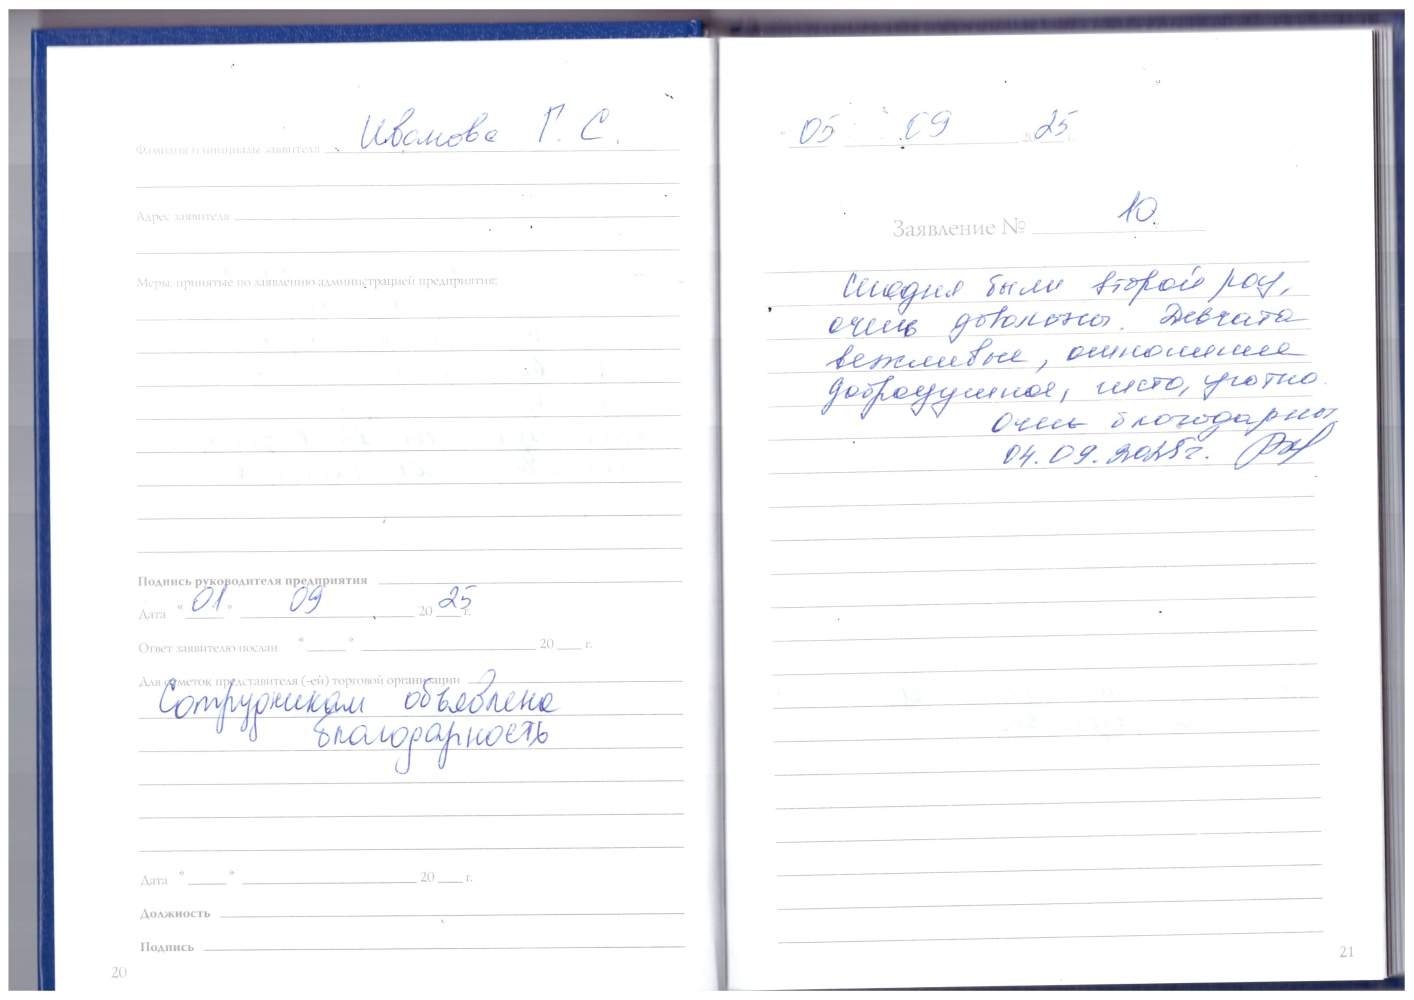 Фамилия и инициалы заявителя Иванова Г. С.
Адрес заявителя
Меры, принятые по заявлению администрацией предприятия:
Подпись руководителя предприятия
Дата "01" 09 2025 г.
Ответ заявителю послан " " 20 г.
Для отметок представителя (-ей) торговой организации
Сотрудникам объявлена
благодарность
Дата " " 20 г.
Должность
Подпись
20
05 09 25
Заявление № 10.
Сегодня были второй раз,
очень довольны. Девчата
вежливые, отношение
добродушное, чисто, уютно.
Очень благодарны
04.09.2025г.
21